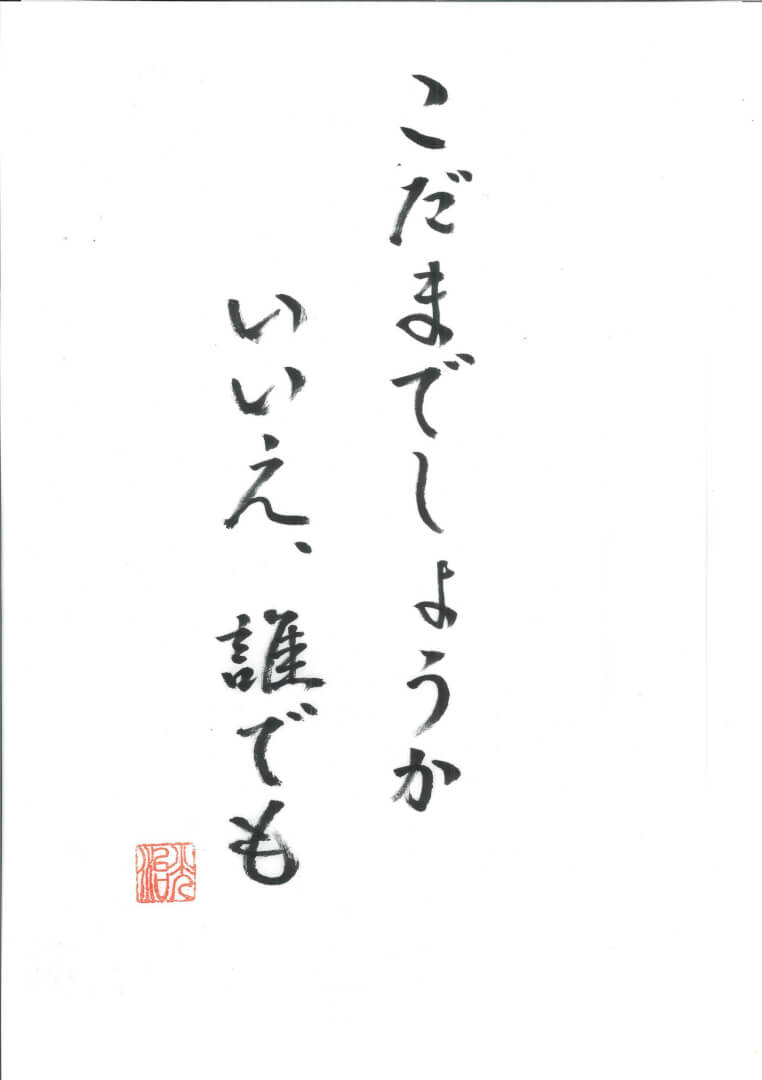 こだまでしょうか
いいえ、誰でも